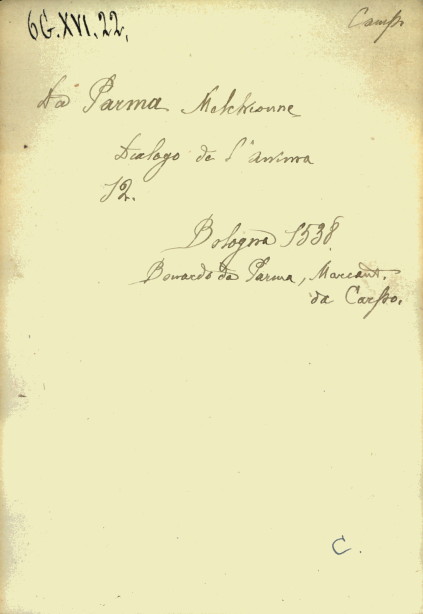 6G.XVI.22.
Camp
Da Parma Melchionne
Dialogo de l'anima
12.
Bologna 1538.
Bonardo da Parma, Marcant.
da Carpo.
C.